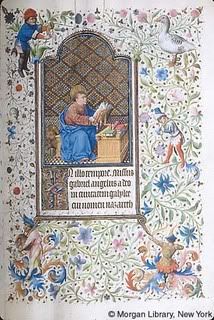 In illo tempore. Missus
gabriel angelus a deo
in ciuitatem galylee
cui nomen nazareth
© Morgan Library, New York